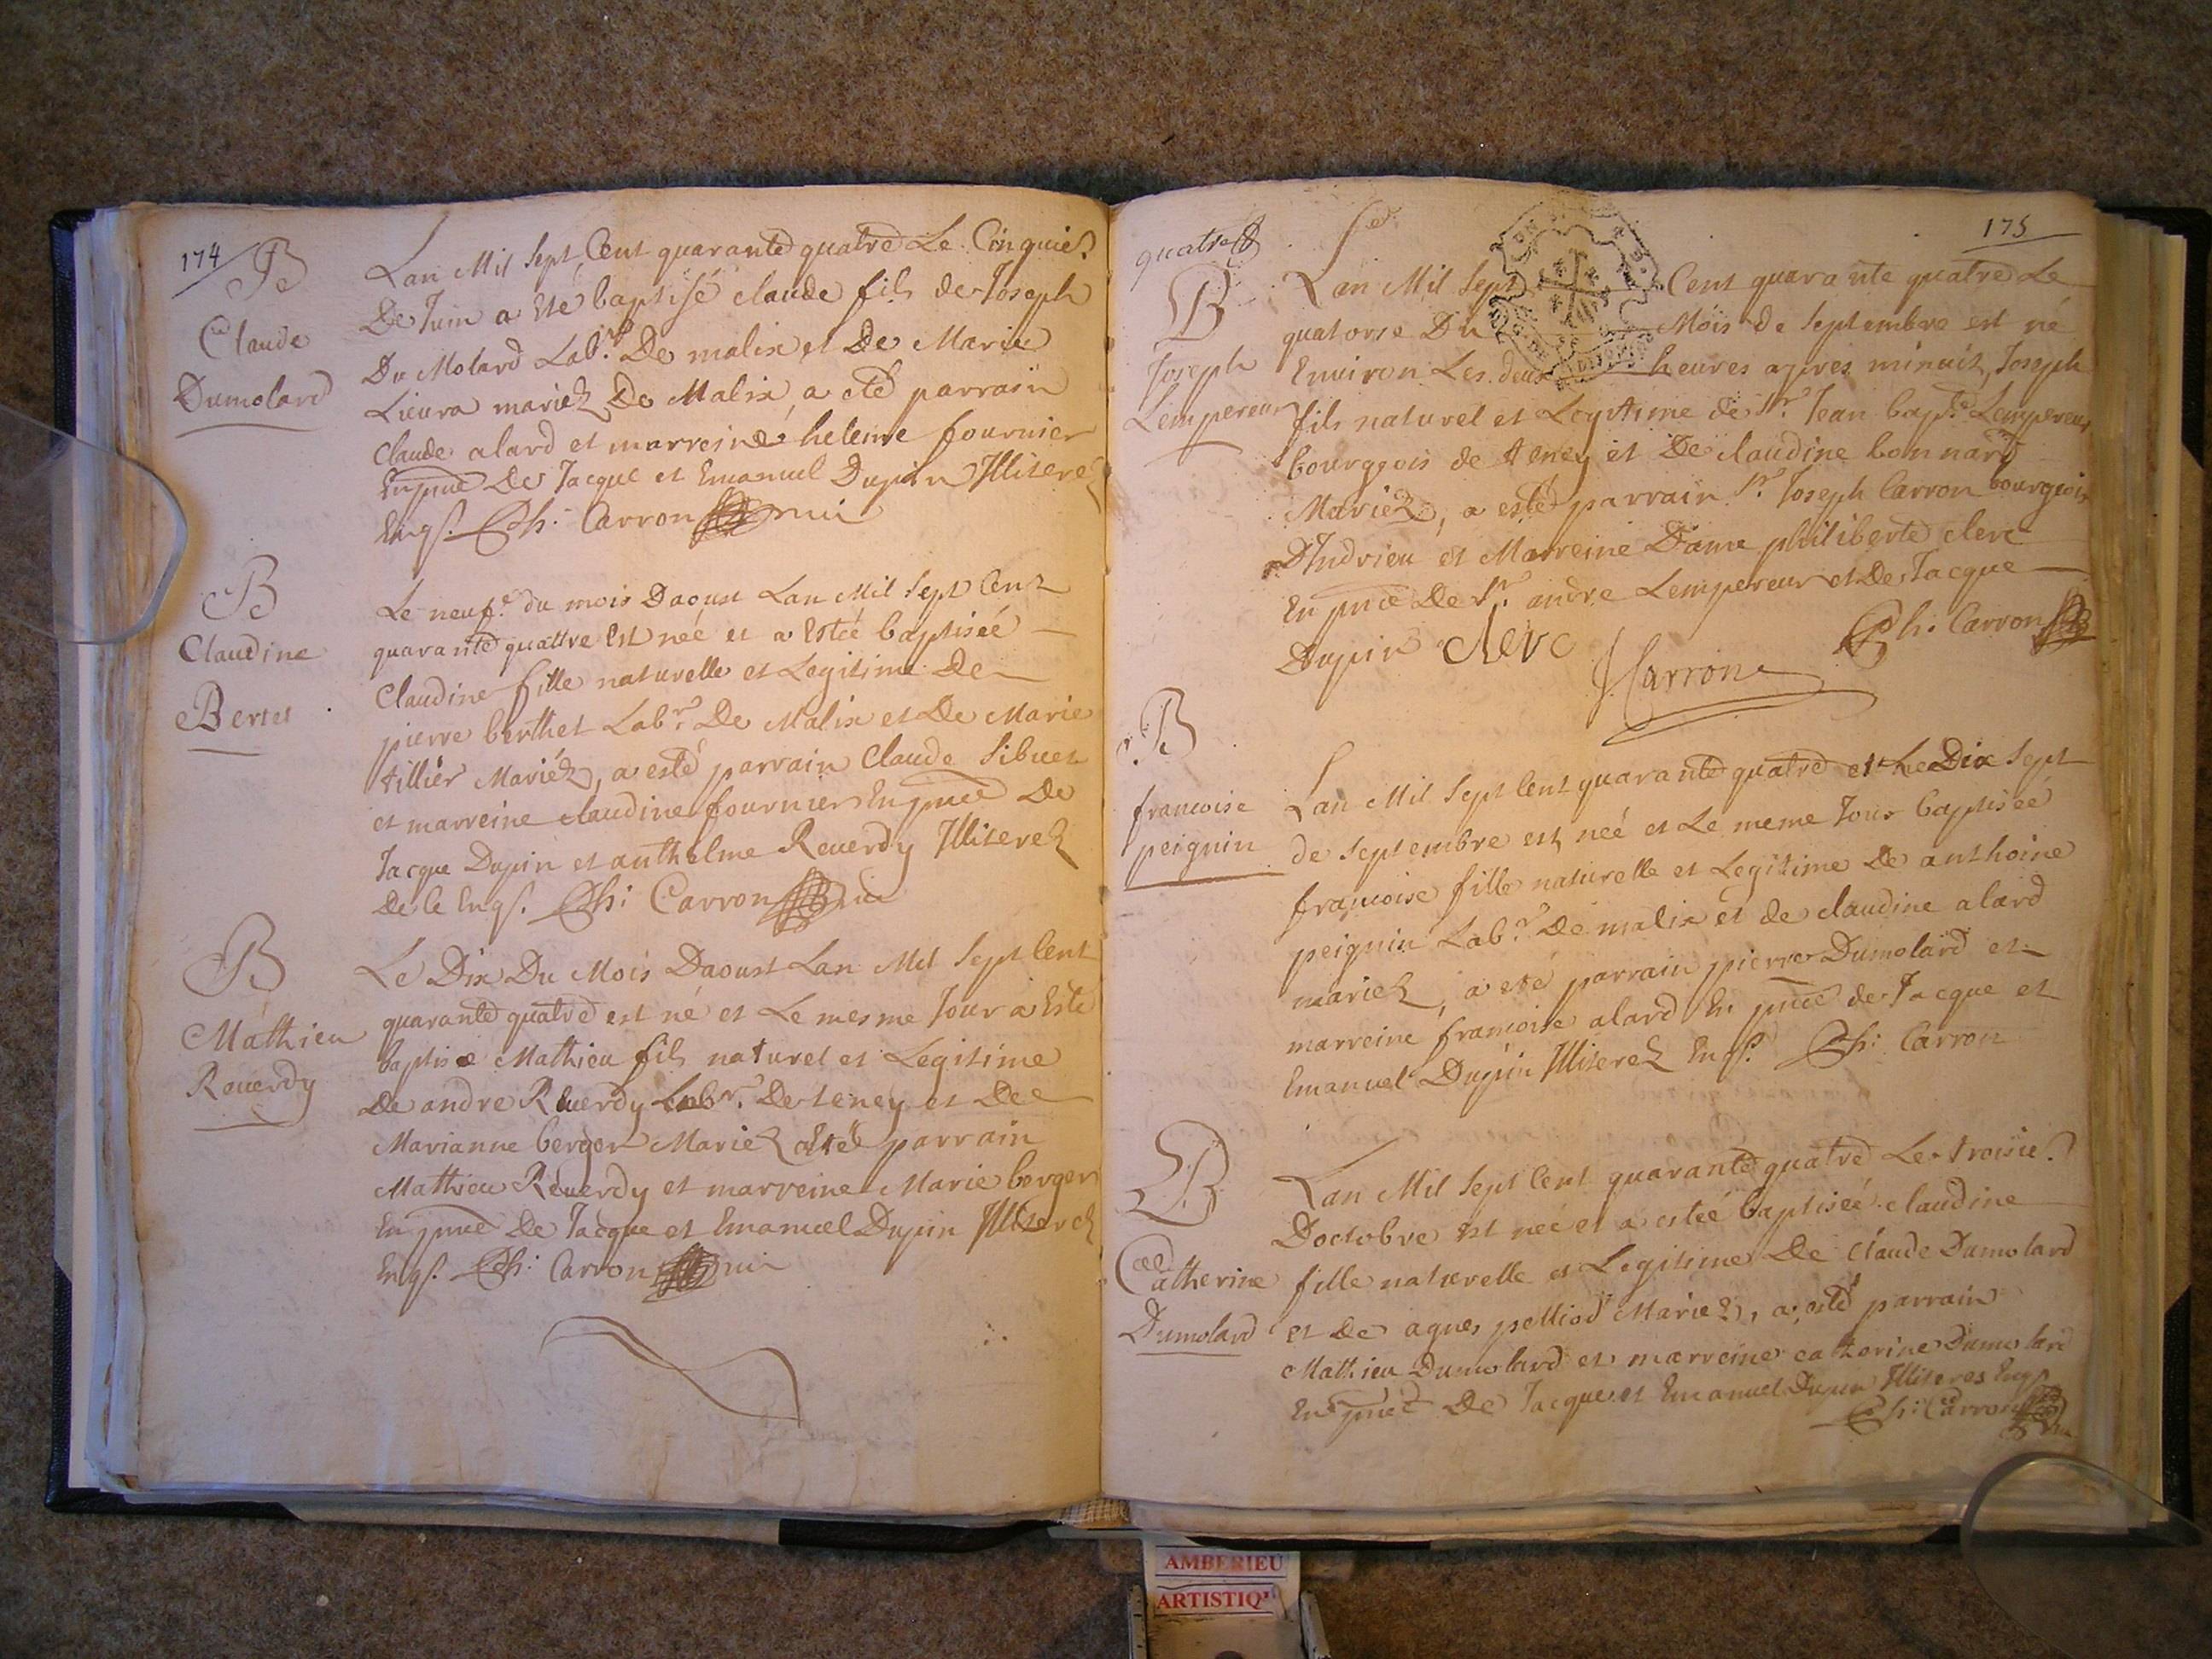 174
B
Claude
Dumolard
Lan Mil Sept Cent quarante quatre Le Cinquie?
De Juin a Eté baptisé claude fils de Joseph
Du Molard Labr. De malix et De Marie
Lieura mariez De Malix a eté parrain
Claude alard et marreine heleine fournier
En pnce De Jacque et Emanuel Dupin Illiterez
Enqs. Ph: Carron
B
Claudine
Bertet
Le neufe. du mois Daoust Lan Mil Sept Cent
quarante quattre Est neé et a Esteé baptiseé
Claudine fille naturelle et Legitime De
pierre berthet Labr. De Malix et De Marie
tillier Mariéz, a esté parrain Claude Sibuet
et marreine claudine fournier En pnce De
Jacque Dupin et anthelme Reuerdy Illiterez
De ce Enqs. Ph: Carron
B
Mathieu
Reuerdy
Le Dix Du Mois Daoust Lan Mil Sept Cent
quarante quatre est né et Le mesme Jour a Esté
baptisé Mathieu fils naturel et Legitime
De andre Reuerdy Labr. De teney et Dee
Marianne berger Mariez a eté parrain
Mathieu Reuerdy et marreine Marie berger
En pnce De Jacque et Emanuel Dupin Illiterez
Enqs. Ph: Carron
quatre
175
B
Joseph
Lempereur
Lan Mil Sept Cent quarante quatre Le
quatorse Du Mois de Septembre est né
Enuiron Les deux heures apres minuit, Joseph
fils naturel et Legitime de Sr. Jean bapte. Lempereur
bourgeois de teney et De claudine bonnard
Mariez, a esté parrain Sr. Joseph Carron bourgeois
DIndrieu et Marreine Dame philiberte clerc
En pnce De Sr. andre Lempereur et De Jacque
Dupin clerc
JCarron
Ph: Carron
B
francoise
peignin
Lan Mil Sept Cent quarante quatre et Le Dix Sept
de Septembre est neé et Le meme Jour baptiseé
francoise fille naturelle et Legitime De anthoine
peignin Labr. De malix et de claudine alard
mariez, a eté parrain pierre Dumolard et
marreine francoise alard En pnce de Jacque et
Emanuel Dupin Illiterez Enqs. Ph: Carron
B
Catherine
Dumolard
Lan Mil Sept Cent quarante quatre Le troisie?
Doctobre est neé et a esteé baptiseé claudine
fille naturelle et Legitime De claude Dumolard
et De agnes pelliod Mariez, a esté parrain
Mathieu Dumolard et marreine catherine Dumolard
En pnce De Jacque et Emanuel Dupin Illiteres Enqs
Ph: Carron
AMBERIEU
ARTISTIQ